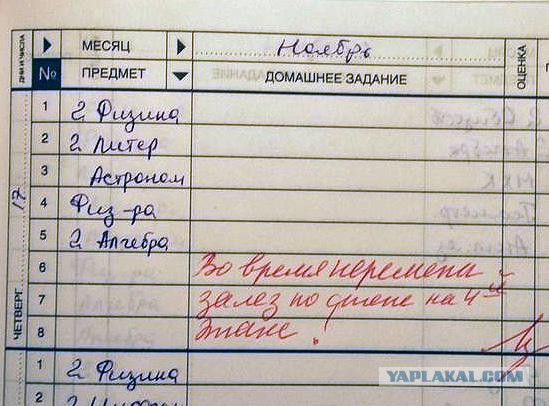 ДНИ И ЧИСЛА
МЕСЯЦ Ноябрь
№ ПРЕДМЕТ ДОМАШНЕЕ ЗАДАНИЕ ОЦЕНКА
17
ЧЕТВЕРГ
1 2 Физика
2 2 Литер
3 Астроном
4 Физ-ра
5 2 Алгебра
6 Во время перемены
7 залез по стене на 4ый
8 этаж!
1 2 Физика
2 2
YAPLAKAL.COM